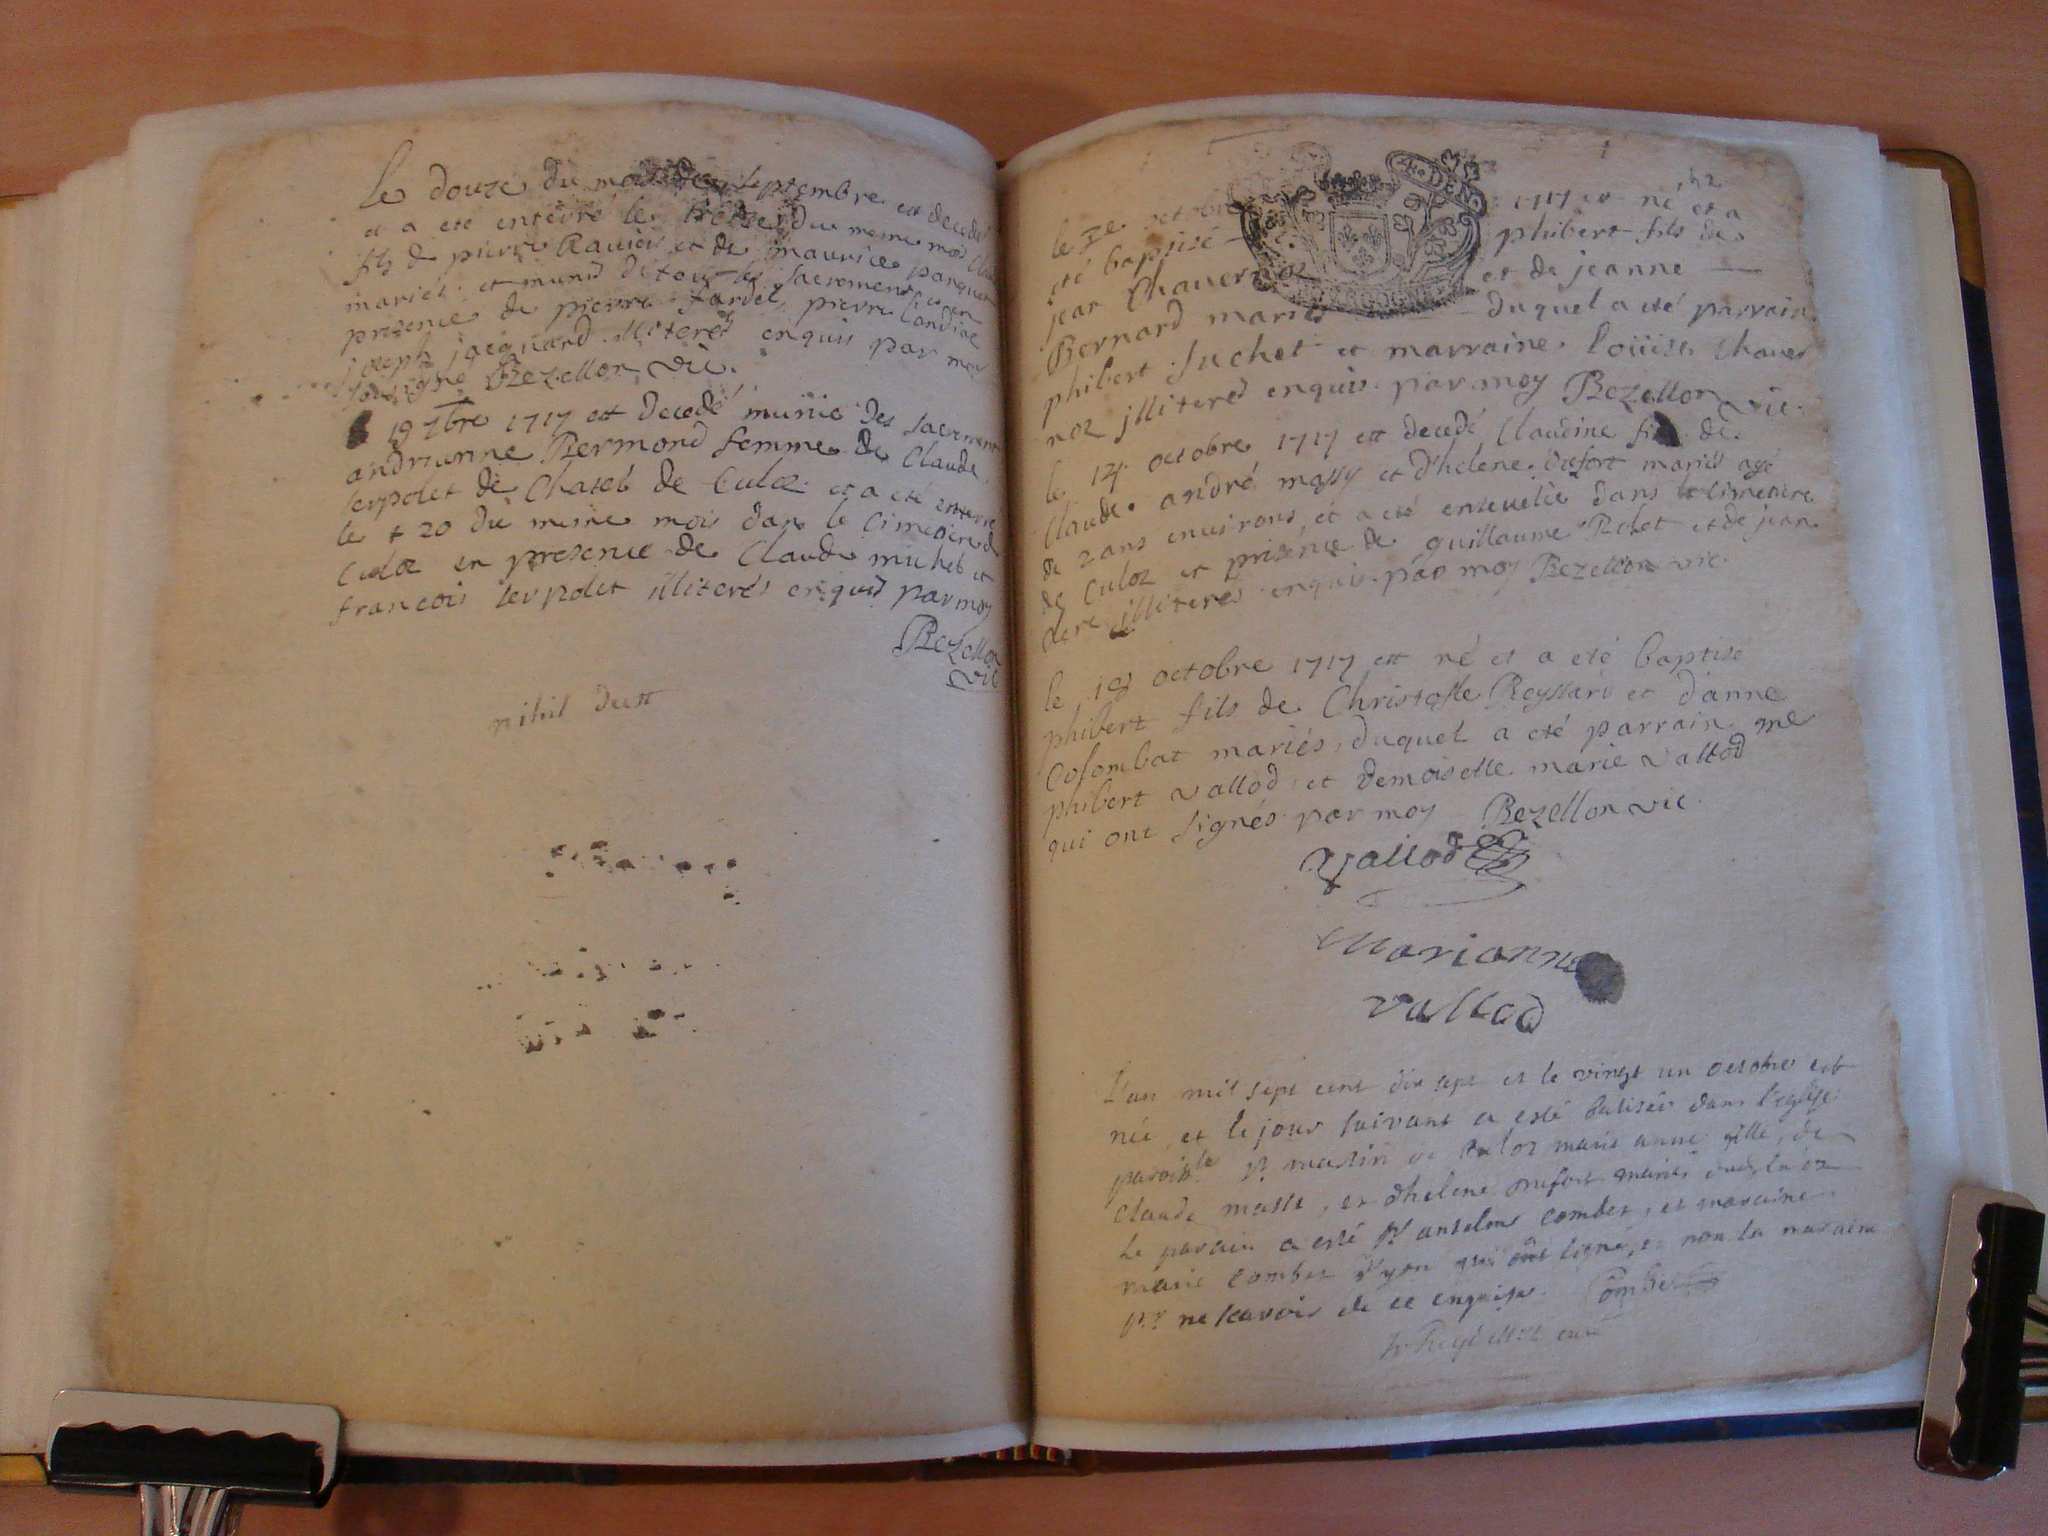 le douze du mois de septembre est decedé
et a eté enterré le treize du meme mois
fils de pierre Ravier et de maurice panquet
mariés et munis de tous les sacrements en
presence de pierre fardel, pierre
joseph jacquard illiterés enquis par moy
soussigné Bezellon vic.
19 7bre 1717 est decedé munie des sacrement
andrianne Bermond femme de Claude
serpolet de Chatel de Culoz et a eté enterré
le 20 du meme mois dans le Cimetiere de
Culoz en presence de Claude michel et
francois serpolet illiterés enquis par moy
Bezellon
vic
nihil deest
42
4. DEN
le octobre 1717 est né et a
eté baptizé phibert fils de
jean Chavernoz et de jeanne
Bernard mariés duquel a eté parrain
phibert suchet et marraine loüise Chaver
noz illiterés enquis par moy Bezellon vic.
le 14 octobre 1717 est decedé Claudine de
Claude andré massy et d'helene dufort mariés agé
de 2 ans environs et a eté ensevelie dans le cimetiere
de Culoz et présence de guillaume Rolet et de jean
illiterés enquis par moy Bezellon vic.
le 18 octobre 1717 est né et a eté baptisé
phibert fils de Christofle Reyssari et d'anne
Colombat mariés, duquel a eté parrain me
phibert vallod et demoiselle marie vallod
qui ont signés par moy Bezellon vic.
Vallod
Marianne
vallod
L'an mil sept cent dix sept et le vingt un octobre est
née et le jour suivant a esté batisée dans l'eglise
paroisle St martin de Culoz marie anne fille de
Claude masse, et d'helene dufort mariés
Le parain a esté Sr anselme combet, et maraine
marie combet qui ont signé, et non la maraine
pr ne scavoir de ce enquise. Combet
curé